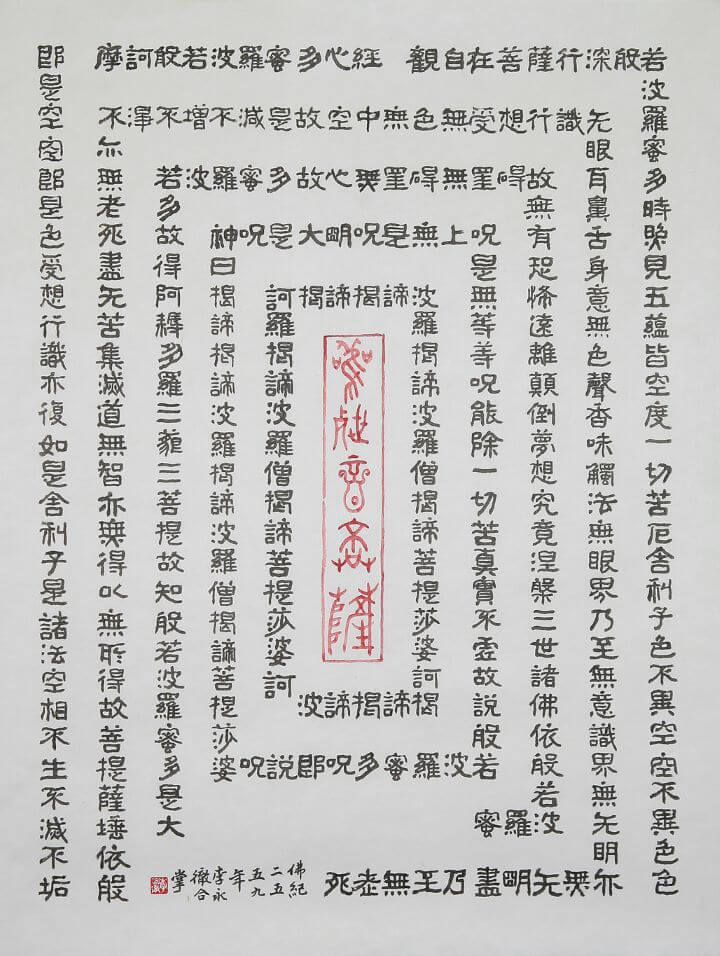 摩訶般若波羅蜜多心經 觀自在菩薩行深般
若波羅蜜多時照見五蘊皆空度一切苦厄舍利子色不異空空不異色色
即是空空即是色受想行識亦復如是舍利子是諸法空相不生不滅不垢
不淨不增不減是故空中無色無受想行識
无眼耳鼻舌身意無色聲香味觸法無眼界乃至無意識界無无明
亦無无明盡乃至無老死
亦無老死盡无苦集滅道無智亦無得以無所得故菩提薩埵依般
若波羅蜜多故心無罣碍無罣碍
故無有恐怖遠離顛倒夢想究竟涅槃三世諸佛依般若波
羅蜜
多故得阿耨多羅三藐三菩提故知般若波羅蜜多是大
神咒是大明咒是無上咒
是無等等咒能除一切苦真實不虛故説般若
波羅蜜多咒即説咒
曰揭諦揭諦波羅揭諦波羅僧揭諦菩提莎婆
訶揭諦揭諦
波羅揭諦波羅僧揭諦菩提莎婆訶揭
諦揭諦波
羅揭諦波羅僧揭諦菩提莎婆訶
觀世音菩薩
佛紀
二五
五九
年
李永
徹合
掌